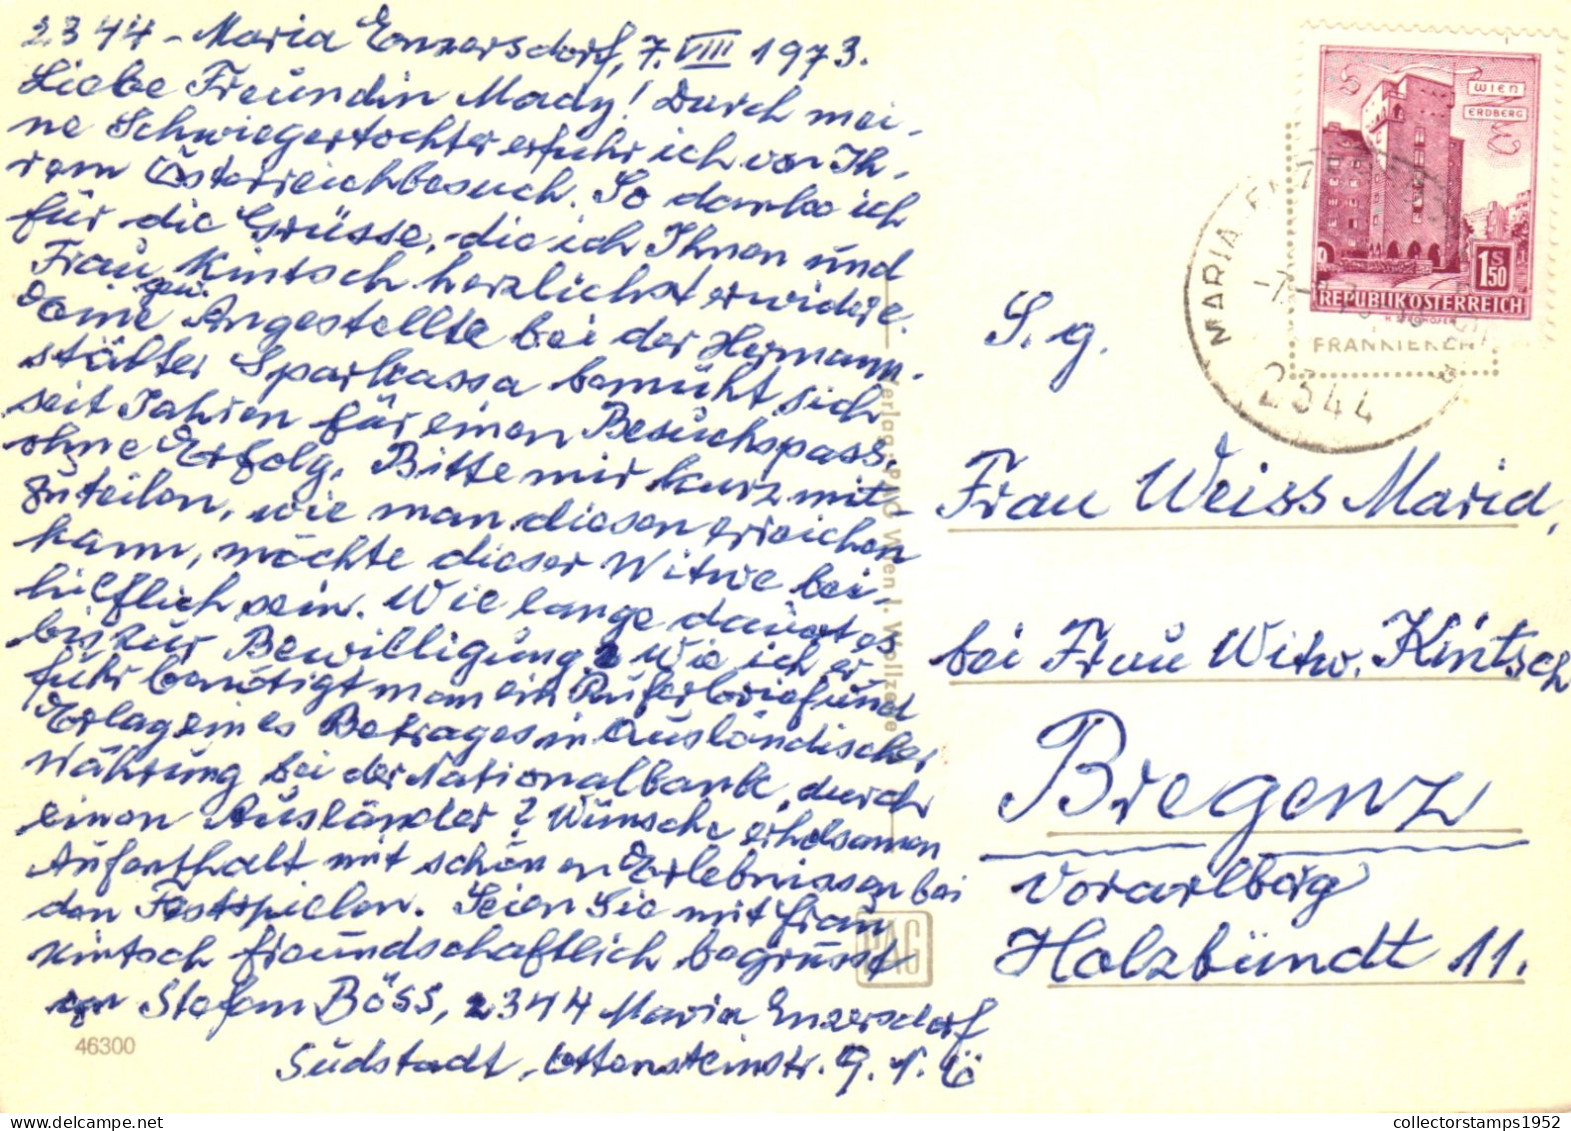 2344 - Maria Enzersdorf, 7. VIII 1973.
Liebe Freundin Mady! Durch mei-
ne Schwiegertochter erfuhr ich von Ih-
rem Österreichbesuch. So danke ich
für die Grüsse, die ich Ihnen und
Frau Kintsch herzlichst erwidere.
Eine Angestellte bei der Hermann-
städter Sparkassa bemüht sich
seit Jahren für einen Besuchspass,
ohne Erfolg. Bitte mir kurz mit-
zuteilen, wie man diesen erreichen
kann, möchte dieser Witwe bei-
hilflich sein. Wie lange dauert es
bis zur Bewilligung? Wie ich er-
fuhr benötigt man ein Ruferbrief und
Erlag eines Betrages in Ausländischer
Währung bei der Nationalbank, durch
einen Ausländer? Wünsche erholsamen
Aufenthalt mit schönen Erlebnissen bei
den Festspielen. Seien Sie mit Frau
Kintsch freundschaftlich begrüsst
von Stefan Böss, 2344 Maria Enzersdorf
Südstadt, Ottensteinstr. 9. N. Ö
46300
Verlag: PAG Wien I. Wollzeile
PAG
WIEN
ERDBERG
1 S 50
REPUBLIK ÖSTERREICH
FRANKIEREN
MARIA ENZERSDORF
2344
S. g.
Frau Weiss Maria,
bei Frau Witw. Kintsch
Bregenz
Vorarlberg
Holzbündt 11.